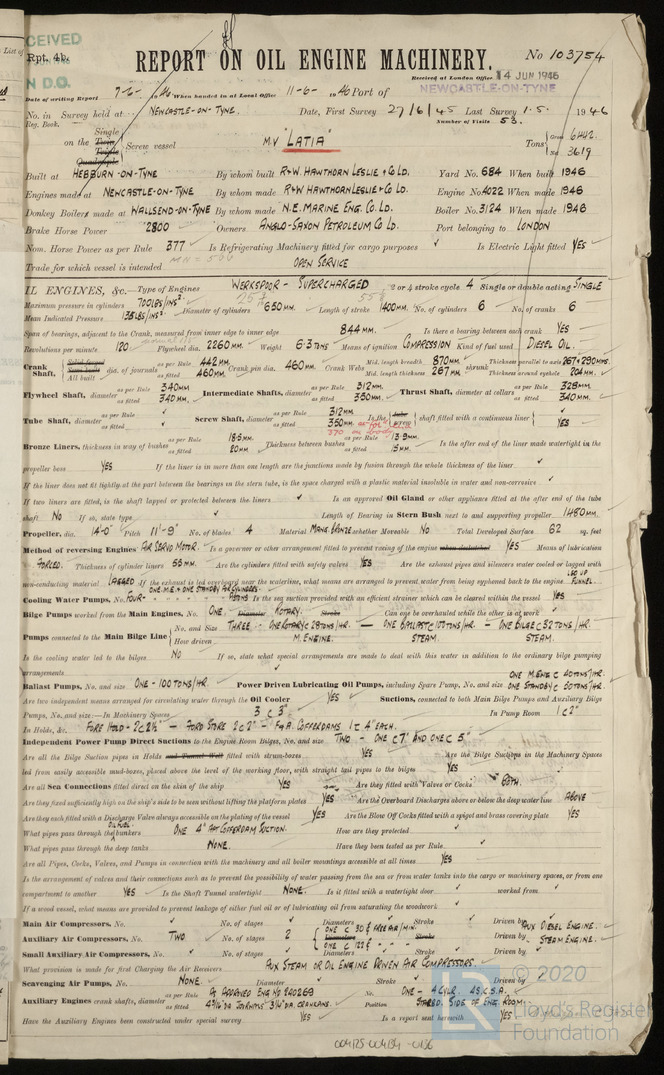 List of
CEIVED
Rpt. 4b.
N D.O.
REPORT ON OIL ENGINE MACHINERY.
No 103754
Received at London Office 14 JUN 1946
NEWCASTLE-ON-TYNE
Date of writing Report 7-6- 1946 When handed in at Local Office 11-6- 1946 Port of
No. in Reg. Book. Survey held at NEWCASTLE-ON-TYNE. Date, First Survey 27/6/45 Last Survey 1.5. 1946
Number of Visits 53.
on the Single Twin Triple Quadruple Screw vessel M.V "LATIA" Tons Gross 6442. Net 3619
Built at HEBBURN-ON-TYNE By whom built R&W. HAWTHORN LESLIE & CO LD. Yard No. 684 When built 1946
Engines made at NEWCASTLE-ON-TYNE By whom made R&W HAWTHORN LESLIE & CO LD. Engine No 4022 When made 1946
Donkey Boilers made at WALLSEND-ON-TYNE By whom made N.E. MARINE ENG. CO. LD. Boiler No. 3124 When made 1946
Brake Horse Power 2800 Owners ANGLO-SAXON PETROLEUM CO LD. Port belonging to LONDON
Nom. Horse Power as per Rule 377 Is Refrigerating Machinery fitted for cargo purposes Is Electric Light fitted YES
Trade for which vessel is intended OPEN SERVICE
IL ENGINES, &c. Type of Engines WERKSPOOR - SUPERCHARGED 2 or 4 stroke cycle 4 Single or double acting SINGLE
Maximum pressure in cylinders 700 LBS/INS². Diameter of cylinders 650 MM. Length of stroke 1400 MM. No. of cylinders 6 No. of cranks 6
Mean Indicated Pressure 135 LBS/INS².
Span of bearings, adjacent to the Crank, measured from inner edge to inner edge 844 MM. Is there a bearing between each crank YES
Revolutions per minute 120 Flywheel dia. 2260 MM. Weight 6.3 TONS Means of ignition COMPRESSION Kind of fuel used DIESEL OIL.
Crank Shaft, Solid forged Semi built All built dia. of journals as per Rule 442 MM. as fitted 460 MM. Crank pin dia. 460 MM. Crank Webs Mid. length breadth 870 MM. Mid. length thickness 267 MM. shrunk Thickness parallel to axis 267 & 290 MMS. Thickness around eyehole 204 MM.
Flywheel Shaft, diameter as per Rule 340 MM. as fitted 340 MM. Intermediate Shafts, diameter as per Rule 312 MM. as fitted 350 MM. Thrust Shaft, diameter at collars as per Rule 328 MM. as fitted 340 MM.
Tube Shaft, diameter as per Rule as fitted Screw Shaft, diameter as per Rule 312 MM. as fitted 350 MM. Is the tube screw shaft fitted with a continuous liner YES
Bronze Liners, thickness in way of bushes as per Rule 18.5 MM. as fitted 20 MM. Thickness between bushes as per Rule 13.9 MM. as fitted 15 MM. Is the after end of the liner made watertight in the
propeller boss YES If the liner is in more than one length are the junctions made by fusion through the whole thickness of the liner.
If the liner does not fit tightly at the part between the bearings in the stern tube, is the space charged with a plastic material insoluble in water and non-corrosive
If two liners are fitted, is the shaft lapped or protected between the liners Is an approved Oil Gland or other appliance fitted at the after end of the tube
shaft NO If so, state type Length of Bearing in Stern Bush next to and supporting propeller 1480 MM.
Propeller, dia. 14'-0" Pitch 11'-9" No. of blades 4 Material MANG. BRONZE whether Moveable NO Total Developed Surface 62 sq. feet
Method of reversing Engines AIR SERVO MOTOR. Is a governor or other arrangement fitted to prevent racing of the engine when declutched YES Means of lubrication
FORCED. Thickness of cylinder liners 55 MM. Are the cylinders fitted with safety valves YES Are the exhaust pipes and silencers water cooled or lagged with
non-conducting material LAGGED If the exhaust is led overboard near the waterline, what means are arranged to prevent water from being syphoned back to the engine. LED UP FUNNEL.
Cooling Water Pumps, No. FOUR- ONE M.E. & ONE STANDBY Is the sea suction provided with an efficient strainer which can be cleared within the vessel YES
Bilge Pumps worked from the Main Engines, No. ONE. Diameter ROTARY. Stroke Can one be overhauled while the other is at work
Pumps connected to the Main Bilge Line No. and Size THREE - ONE ROTARY C 28 TONS/HR. - ONE BALLAST C 100 TONS/HR. - ONE BILGE C 32 TONS/HR.
How driven M. ENGINE. STEAM. STEAM.
Is the cooling water led to the bilges NO If so, state what special arrangements are made to deal with this water in addition to the ordinary bilge pumping
arrangements
Ballast Pumps, No. and size ONE - 100 TONS/HR. Power Driven Lubricating Oil Pumps, including Spare Pump, No. and size ONE M.ENG C 40 TONS/HR. ONE STANDBY C 50 TONS/HR.
Are two independent means arranged for circulating water through the Oil Cooler YES Suctions, connected to both Main Bilge Pumps and Auxiliary Bilge
Pumps, No. and size:—In Machinery Spaces 3 C 3" In Pump Room 1 C 2"
In Holds, &c. FORE HOLD - 2 C 2½" - FORD STORE 2 C 2" - F & A. COFFERDAMS 1 C 4" EACH.
Independent Power Pump Direct Suctions to the Engine Room Bilges, No. and size TWO - ONE C 7" AND ONE C 5"
Are all the Bilge Suction pipes in Holds and Tunnel Well fitted with strum-boxes YES Are the Bilge Suctions in the Machinery Spaces
led from easily accessible mud-boxes, placed above the level of the working floor, with straight tail pipes to the bilges YES
Are all Sea Connections fitted direct on the skin of the ship YES Are they fitted with Valves or Cocks BOTH.
Are they fixed sufficiently high on the ship's side to be seen without lifting the platform plates YES Are the Overboard Discharges above or below the deep water line ABOVE
Are they each fitted with a Discharge Valve always accessible on the plating of the vessel YES Are the Blow Off Cocks fitted with a spigot and brass covering plate YES
What pipes pass through the OIL FUEL bunkers ONE 4" AFT COFFERDAM SUCTION. How are they protected
What pipes pass through the deep tanks NONE. Have they been tested as per Rule
Are all Pipes, Cocks, Valves, and Pumps in connection with the machinery and all boiler mountings accessible at all times YES
Is the arrangement of valves and their connections such as to prevent the possibility of water passing from the sea or from water tanks into the cargo or machinery spaces, or from one
compartment to another YES Is the Shaft Tunnel watertight NONE. Is it fitted with a watertight door worked from
If a wood vessel, what means are provided to prevent leakage of either fuel oil or of lubricating oil from saturating the woodwork
Main Air Compressors, No. No. of stages Diameters Stroke Driven by
Auxiliary Air Compressors, No. TWO No. of stages 2 Diameters ONE C 30 FREE AIR/MIN. ONE C 122 Stroke Driven by AUX DIESEL ENGINE. STEAM ENGINE.
Small Auxiliary Air Compressors, No. No. of stages Diameters Stroke Driven by
What provision is made for first Charging the Air Receivers AUX STEAM OR OIL ENGINE DRIVEN AIR COMPRESSORS.
Scavenging Air Pumps, No. NONE. Diameter Stroke Driven by
Auxiliary Engines crank shafts, diameter as per Rule as fitted AS APPROVED ENG NO 240269 No. ONE - 4 CYLR. 4S.C.S.A. Position STARBD. SIDE OF ENG. ROOM.
Have the Auxiliary Engines been constructed under special survey YES Is a report sent herewith YES
© 2020
Lloyd's Register
Foundation
004125-004134-0156